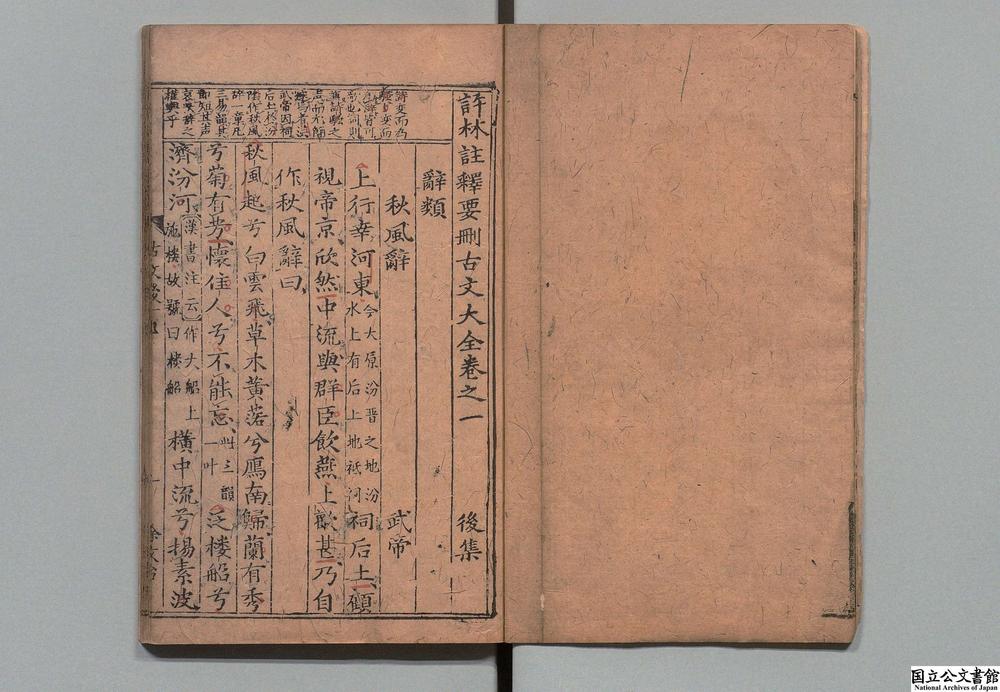 許林註釋要刪古文大全卷之一 後集
辭類
秋風辭 武帝
上行幸河東今大原汾晋之地汾水上有后土地祗祠祠后土顧
視帝京欣然中流與群臣飲燕上歡甚乃自
作秋風辭曰
秋風起兮白雲飛草木黃落兮鴈南歸蘭有秀
兮菊有芳懷佳人兮不能忘此三韻一叶泛楼船兮
濟汾河漢書注云作大船上施楼故號曰楼船橫中流兮揚素波
詩変而為
武帝因祠
后土於汾
陰作秋風
辭一章凡
三易韻其
国立公文書館
National Archives of Japan